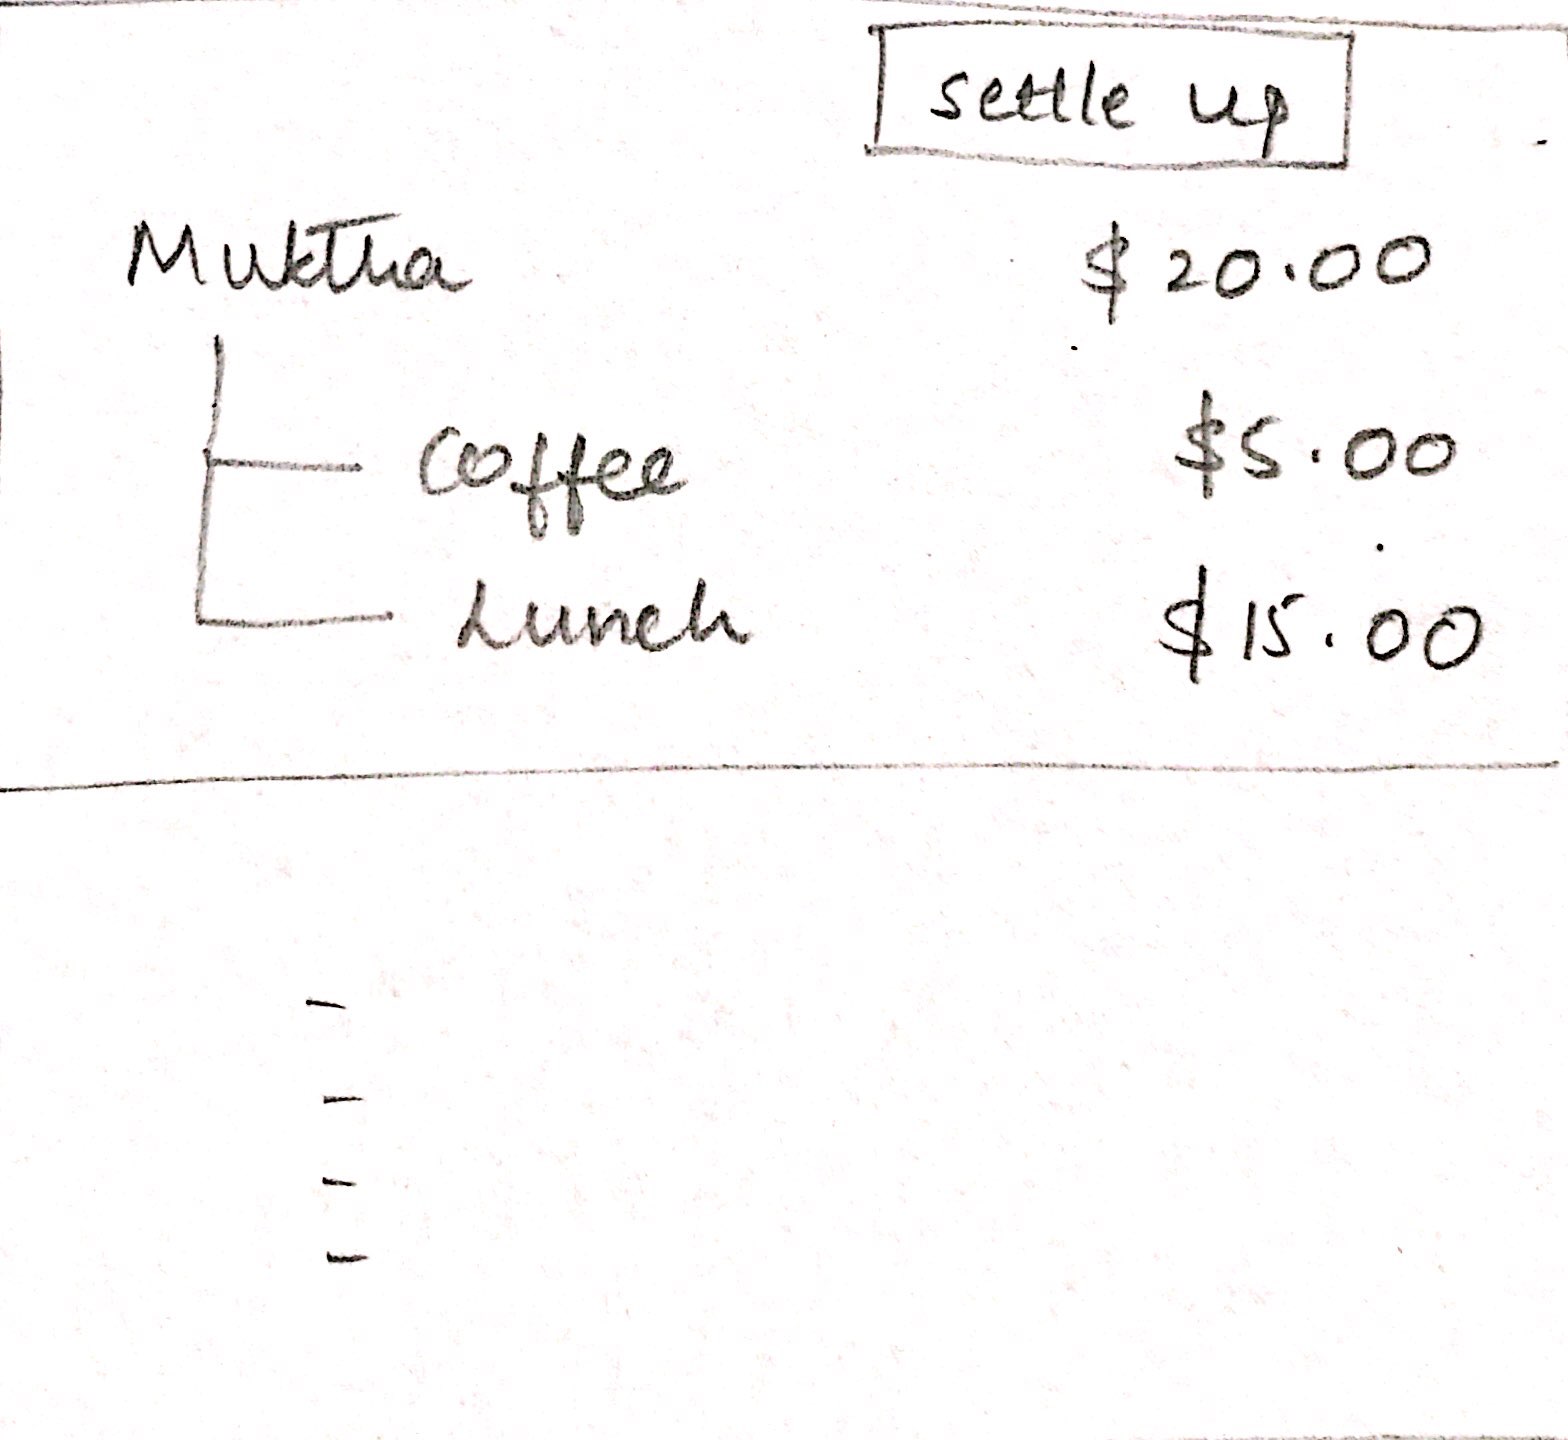 settle up
Muktha $20.00
Coffee $5.00
Lunch $15.00
-
-
-
-